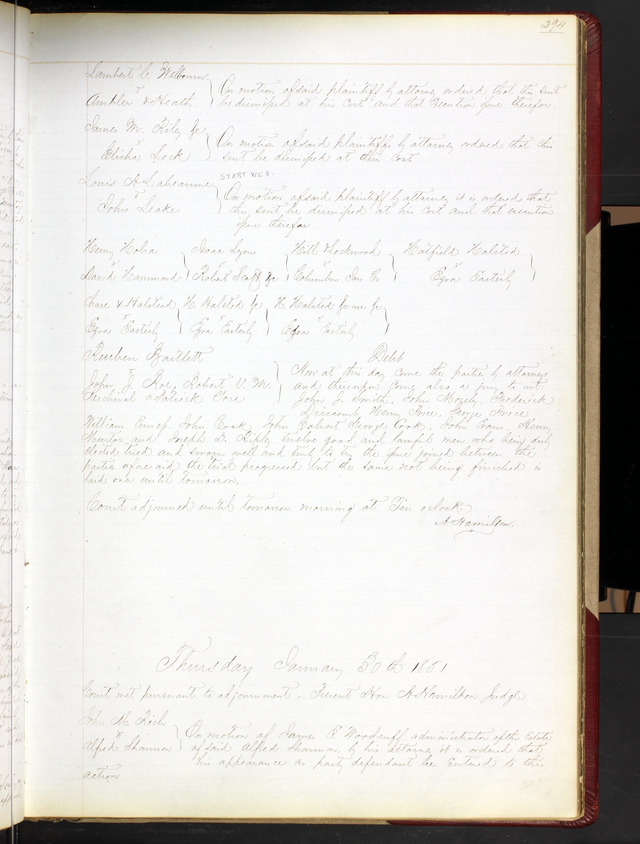 294
Lambert C Welborn
vs
Ambler & Heath
On motion of said plaintiff by attorney ordered that this suit
be dismissed at his cost and that Execution issue therefor
James W. Riley Jr
vs
Elisha Lock
On motion of said plaintiffs by attorney ordered that this
suit be dismissed at their cost
START WED.
Louis A Labeaume
vs
John Leake
On motion of said plaintiff by attorney it is ordered that
this suit be dismissed at his cost and that execution
issue therefor
Henry Holia
vs
David Hammond
Isaac Lyons
vs
Robert
Hill & Lockwood
vs
Columbus Ins Co.
Hatfield Halsted
vs
Ezra Easterly
& Halstead
vs
Ezra Easterly
H. Halsted Jr
vs
Ezra Easterly
H. Halsted Jr
vs
Ezra Easterly
Reuben Bartlett
vs
John J. Roe, Robert V. M.
& Patrick Gore
Debt
Now at this day come the parties by attorneys
and thereupon comes also a jury to wit
John J. Smith, John Mozely Frederick
Henry George Price
William John Cook, John Colvert George Cook, John Evans, Henry
and Joseph D. Ripley twelve good and lawful men who being duly
elected tried and sworn well and truly to try the issue joined between the
parties aforesaid the trial progressed but the same not being finished is
laid over until tomorrow
Court adjourned until tomorrow morning at Ten oclock
A Hamilton
Thursday January 30th 1851
Court met pursuant to adjournment. Present Hon A Hamilton Judge
John M. Rech
vs
Alfred Shannon
On motion of James E Woodruff administrator of the Estate
of said Alfred Shannon by his attorney it is ordered that
his appearance as party defendant be Entered to this
action